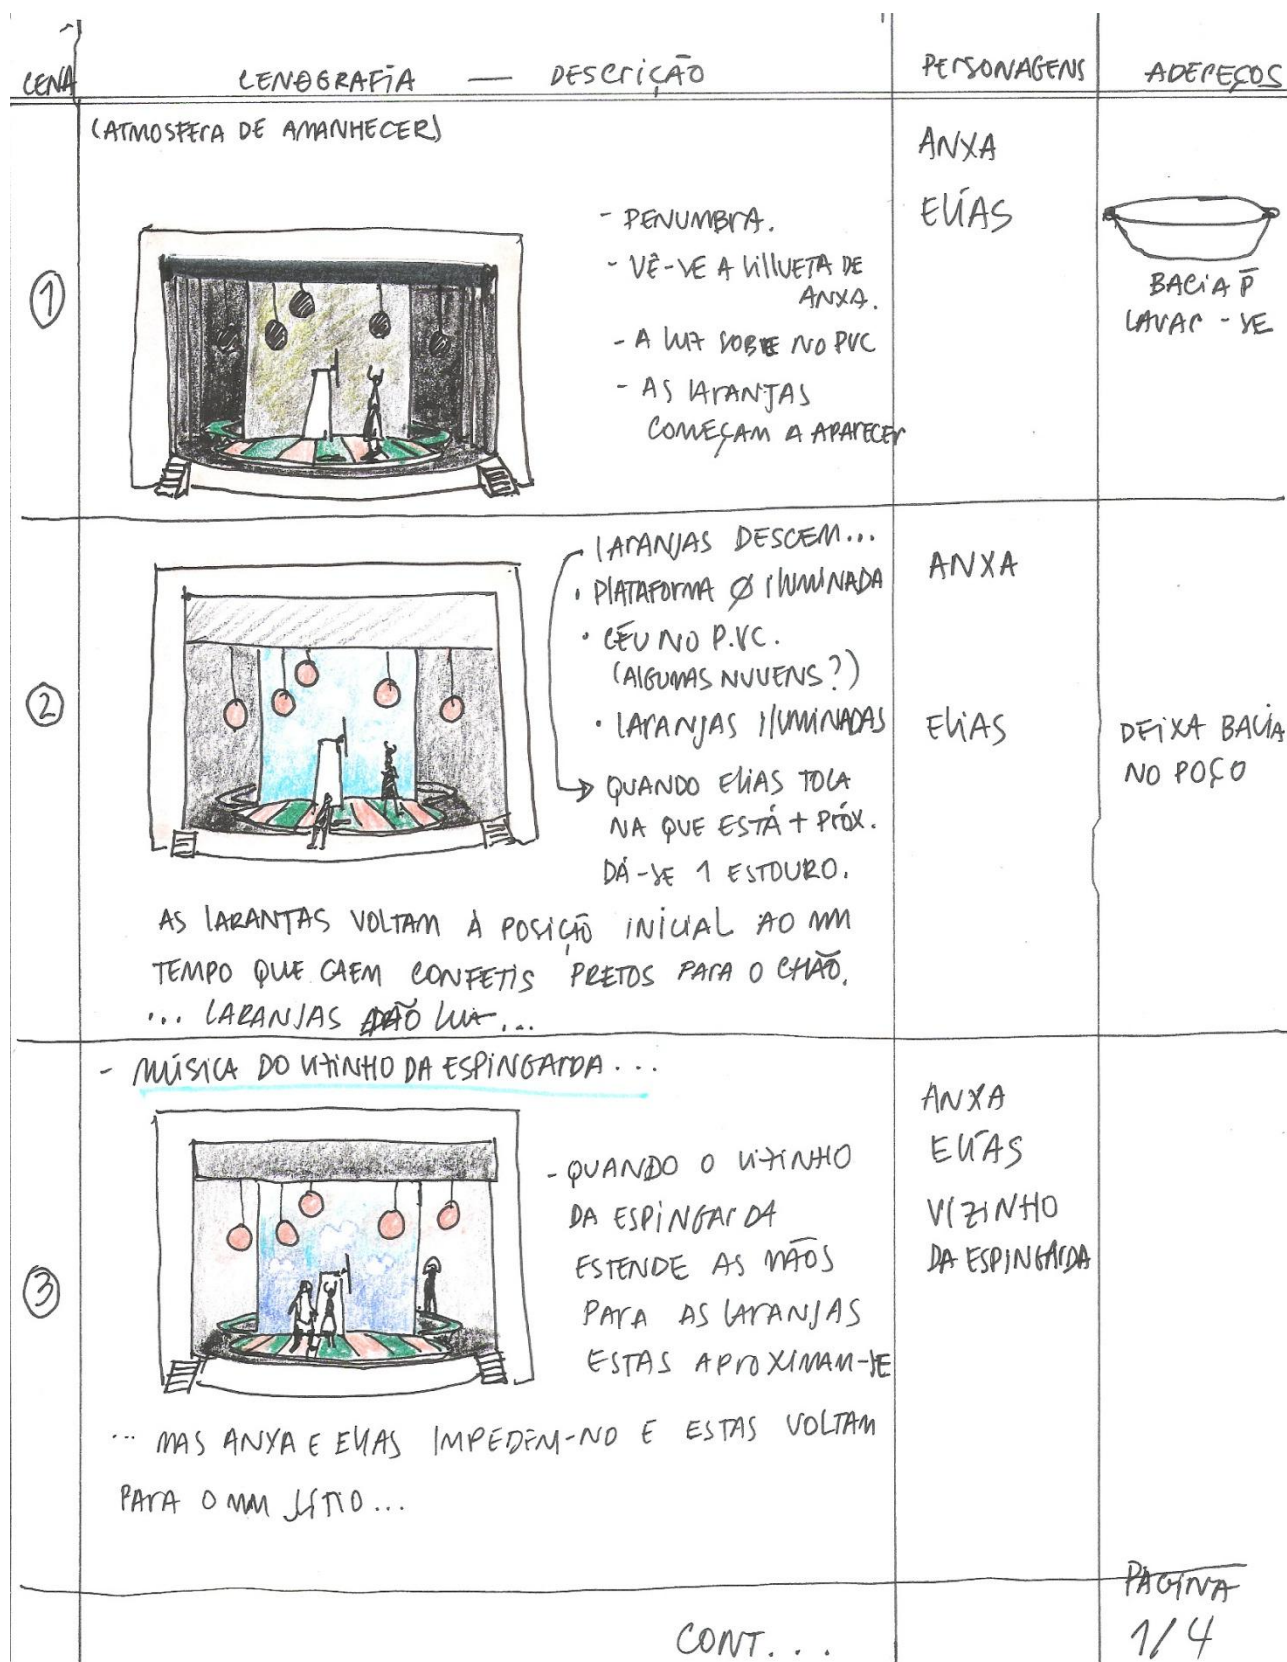 CENA
CENOGRAFIA — DESCRIÇÃO
PERSONAGENS
ADEREÇOS
(ATMOSFERA DE AMANHECER)
1
- PENUMBRA.
- VÊ-SE A SILLUETA DE
ANXA.
- A LUZ SOBE NO PVC
- AS LARANJAS
COMEÇAM A APARECER
ANXA
ELIAS
BACIA P
LAVAR-SE
2
LARANJAS DESCEM...
• PLATAFORMA Ø ILUMINADA
• CÉU NO P.VC.
(ALGUMAS NUVENS?)
• LARANJAS ILUMINADAS
QUANDO ELIAS TOCA
NA QUE ESTÁ + PRÓX.
DÁ-SE 1 ESTOURO.
AS LARANJAS VOLTAM À POSIÇÃO INICIAL AO MM
TEMPO QUE CAEM CONFETIS PRETOS PARA O CHÃO.
... LARANJAS DÃO LUZ...
ANXA
ELIAS
DEIXA BACIA
NO POÇO
3
- MÚSICA DO VIZINHO DA ESPINGARDA...
- QUANDO O VIZINHO
DA ESPINGARDA
ESTENDE AS MÃOS
PARA AS LARANJAS
ESTAS APROXIMAM-SE
... MAS ANXA E ELIAS IMPEDEM-NO E ESTAS VOLTAM
PARA O MM SÍTIO...
ANXA
ELIAS
VIZINHO
DA ESPINGARDA
CONT...
PÁGINA
1/4